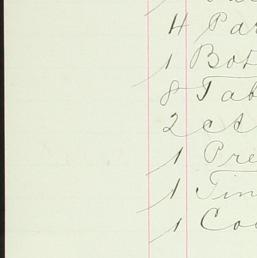 4 Par
1 Bot
8 Tab
2 cts
1 Pre
1 Tin
1 Coo